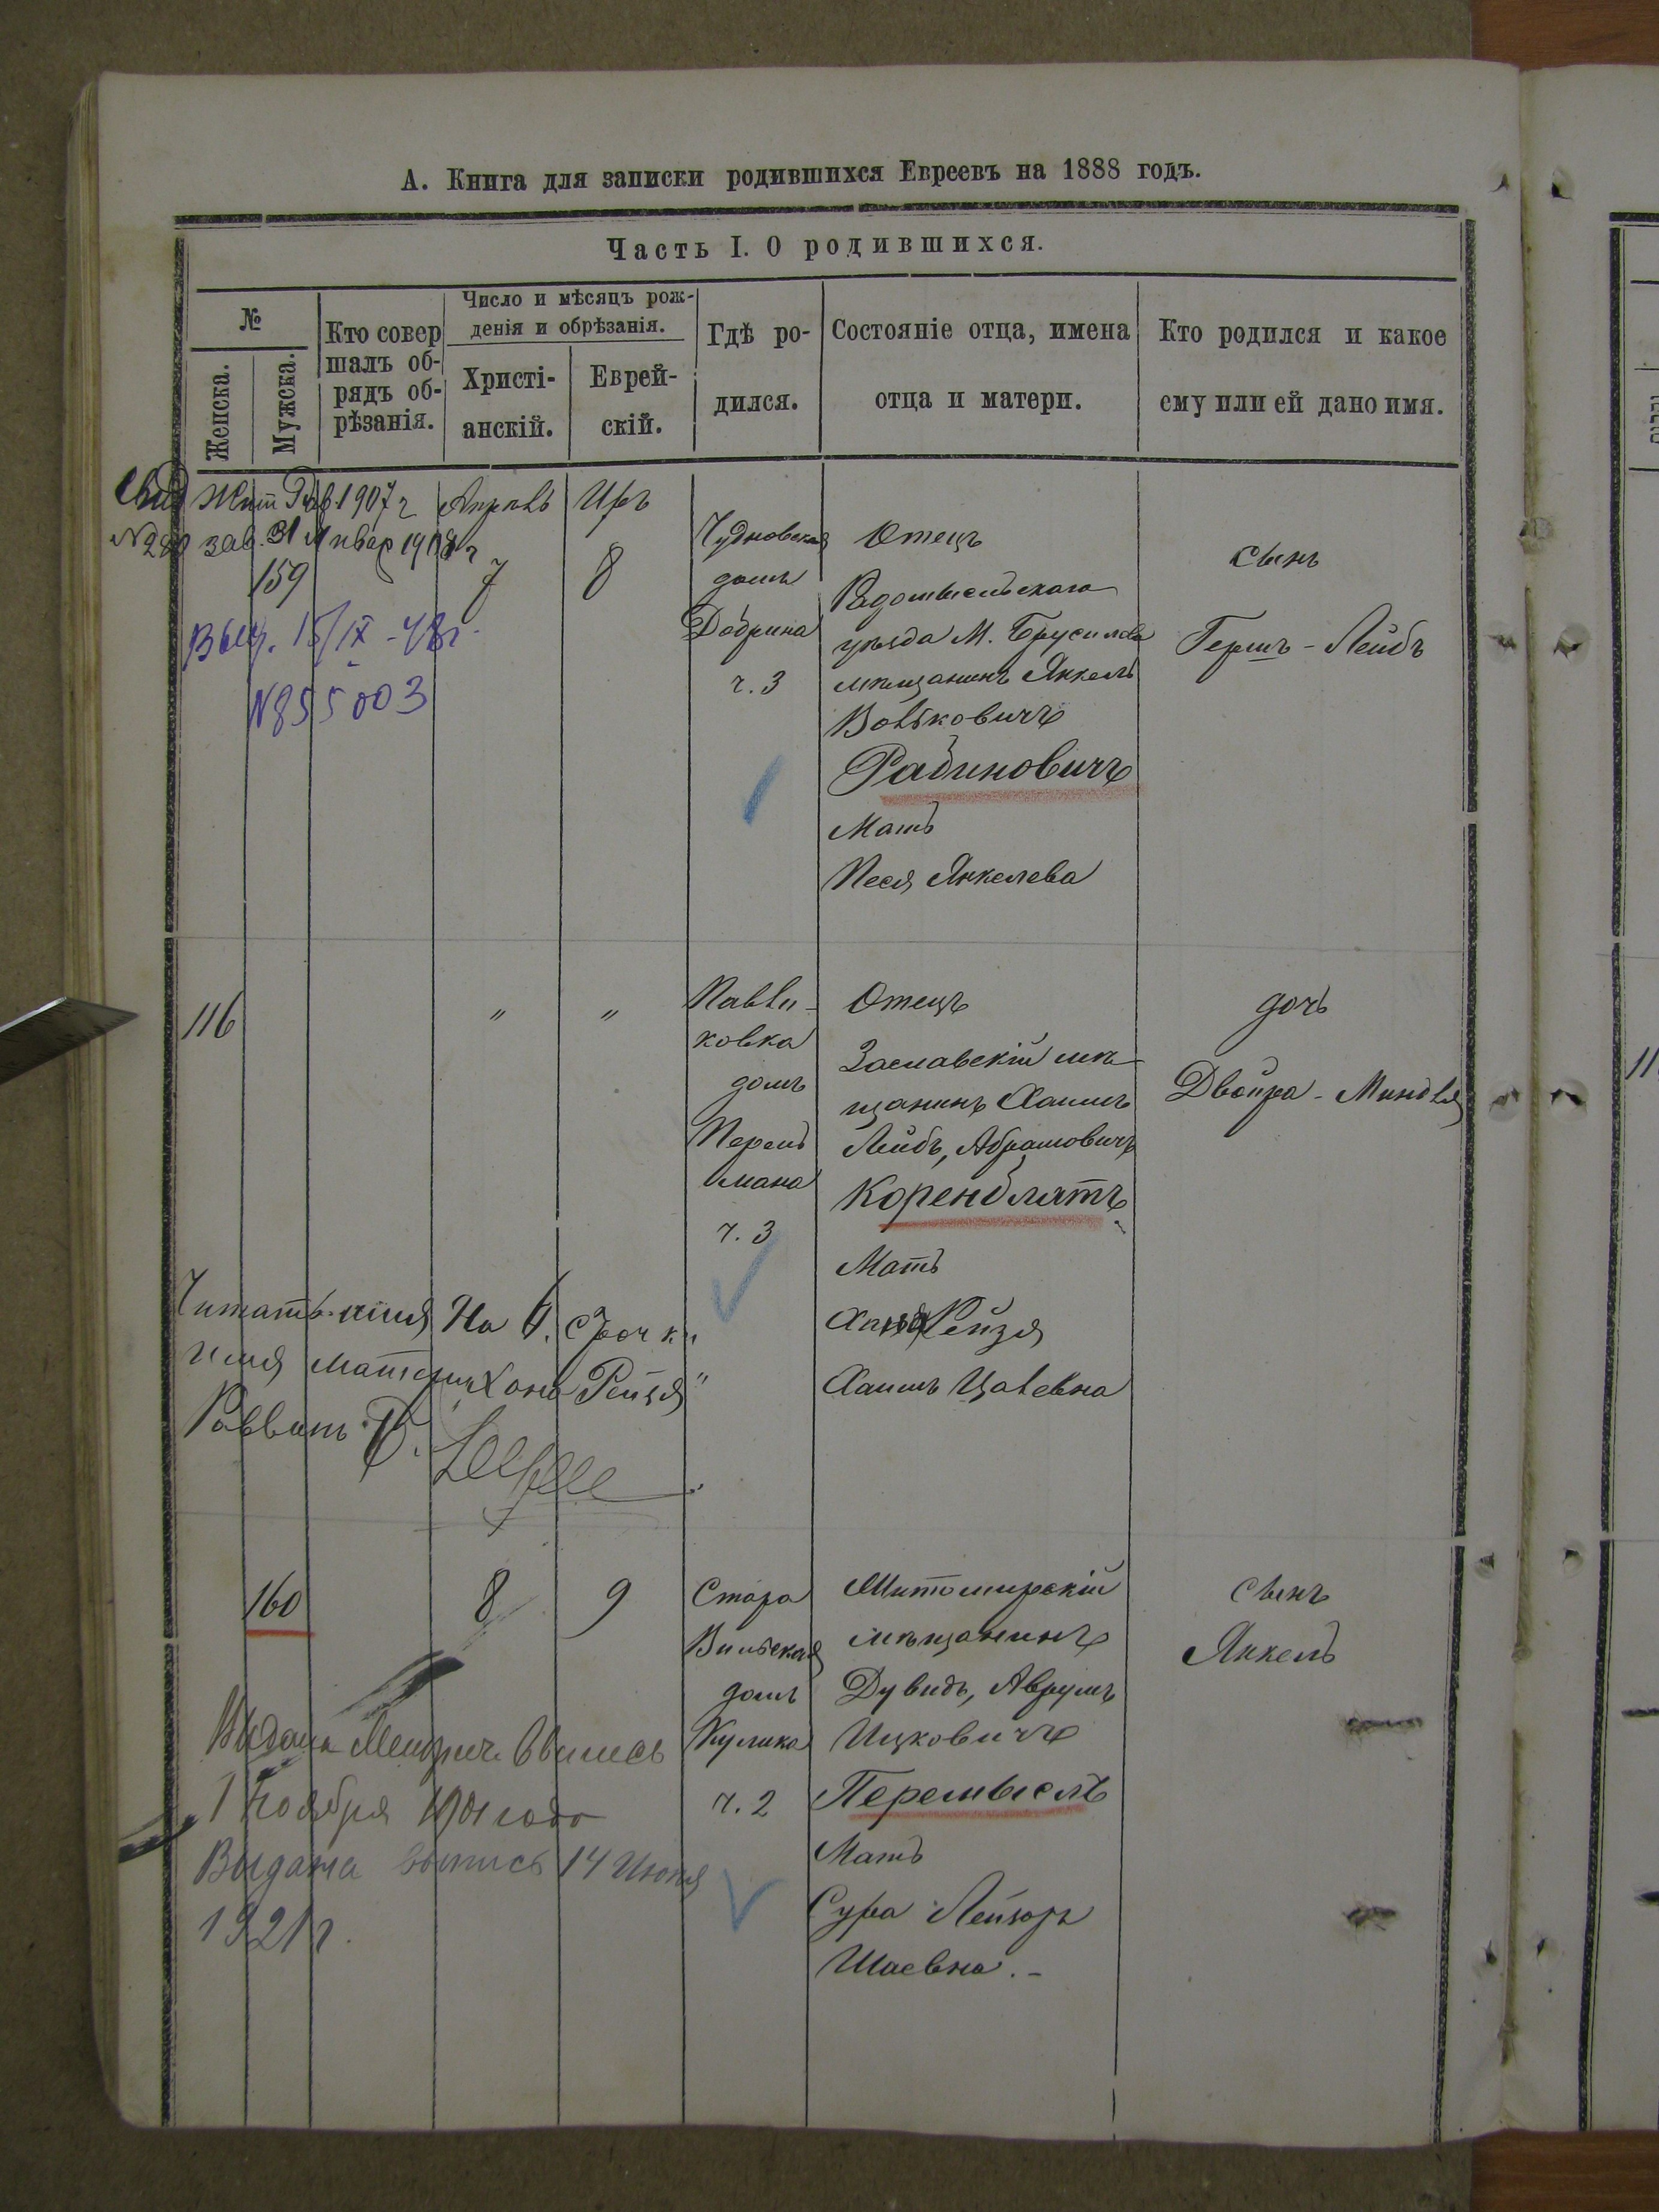 А. Книга для записки родившихся Евреевъ на 1888 годъ.
Часть I. О родившихся.
№
Женска.
Мужска.
Кто совер
шалъ об-
рядъ об-
рѣзанія.
Число и мѣсяцъ рож-
денія и обрѣзанія.
Христі-
анскій.
Еврей-
скій.
Гдѣ ро-
дился.
Состояніе отца, имена
отца и матери.
Кто родился и какое
ему или ей дано имя.
Свид Жит Рав. 1907 г
зав. 31 Январ 1908 г
159
Апрѣль
7
Иръ
8
Чудновская
домъ
Добрина
ч. 3
Отецъ
Радомысльскаго
уѣзда М. Брусилова
мѣщанинъ Янкель
Вольковичъ
Рабиновичъ
Мать
Песя Янкелева
сынъ
Гершъ-Лейбъ
Выд. 15/IX-48г.
N 855003
116
"
"
Павли-
ковка
домъ
Перель
мана
ч. 3
Отецъ
Заславскій мѣ
щанинъ Хаимъ
Лейбъ, Абрамовичъ
Коренблатъ
Мать
Рейзя
Хаимъ
дочь
Двойра-Миндля
Читать
На 6. строчкѣ
имя матери Хана Рейзя"
Раввинъ
160
8
9
Старо
Вильская
домъ
Кулика
ч. 2
Житомирскій
мѣщанинъ
Дувидъ, Аврумъ
Ицковичъ
Перемыслъ
Мать
Сура Лейзоръ
Шаевна.-
сынъ
Янкель
Выдана Метрич. Выпись
1 Ноября 1901 года
Выдана выпись 14 Июня
1921 г.